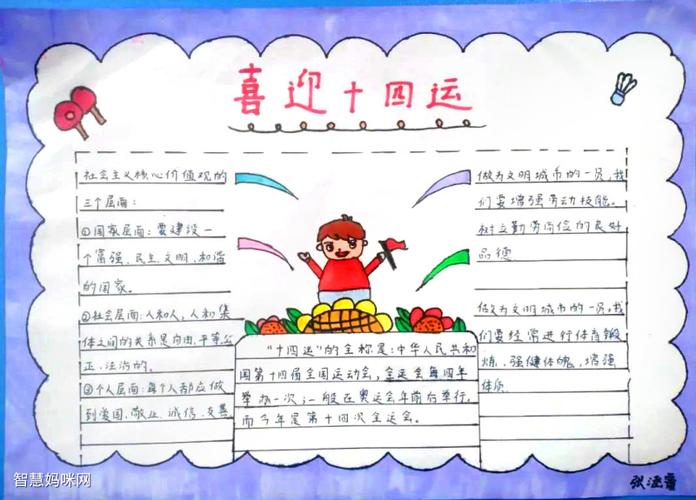 喜迎十四运
社会主义核心价值观的
三个层面:
①国家层面:要建设一
个富强、民主、文明、和谐
的国家。
②社会层面:人和人,人和集
体之间的关系是自由、平等、公
正、法治的。
③个人层面:每个人都应做
到爱国、敬业、诚信、友善
"十四运"的全称是:中华人民共和
国第十四届全国运动会,全运会每四年
举办一次,一般在奥运会年前后举行。
而今年是第十四次全运会。
做为文明城市的一员,我
们要增强劳动技能。
树立勤劳简俭的良好
品德
做为文明城市的一员,我
们要经常进行体育锻
炼,强健体魄,增强
体质
智慧妈咪网
张